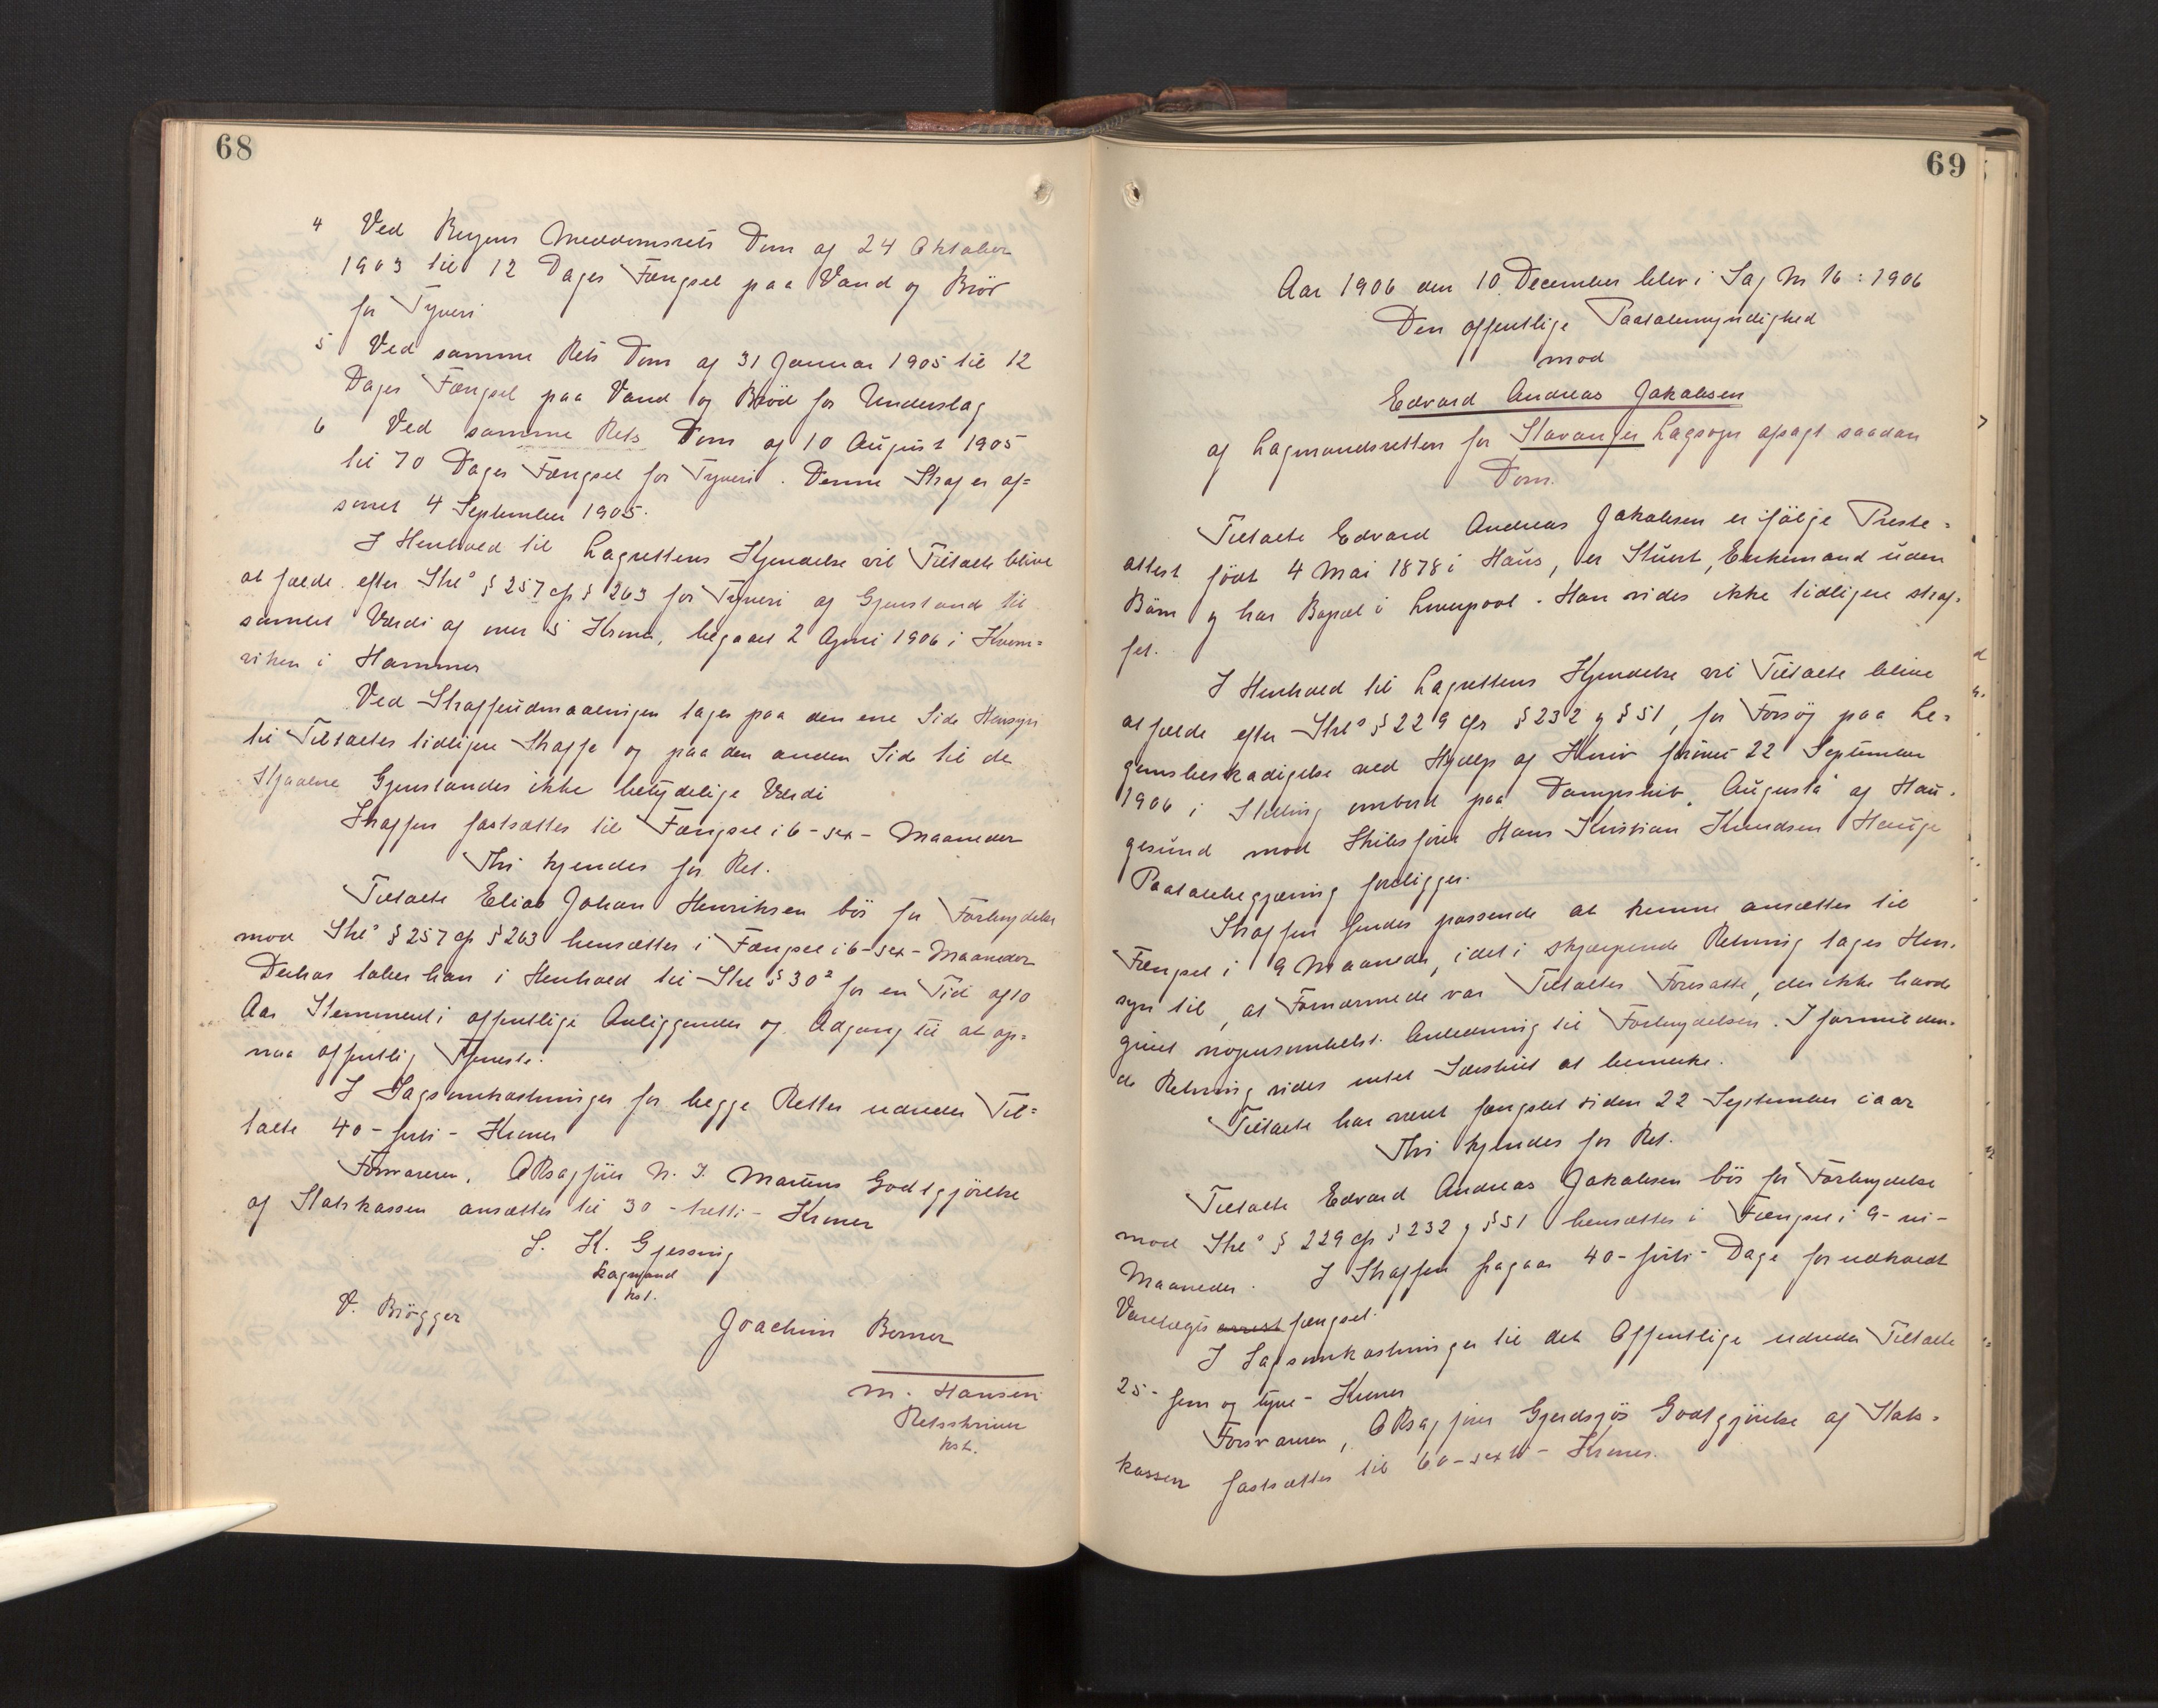 68
4 Ved Bergens Meddomsrets Dom af 24 Oktober
1903 til 12 Dages Fængsel paa Vand og Brød
for Tyveri
5 Ved samme Rets Dom af 31 Januar 1905 til 12
Dages Fængsel paa Vand og Brød for Underslag
6 Ved samme Rets Dom af 10 August 1905
til 70 Dages Fængsel for Tyveri. Denne Straf er af=
sonet 4 September 1905.
I Henhold til Lagrettens Kjendelse vil Tiltalte blive
at fælde efter Strl's § 257 cfr § 263 for Tyveri af Gjenstande til
samlet Værdi af over 5 Kroner, begaaet 2 April 1906 i Kvern=
viken i Hammer
Ved Straffeudmaalingen tages paa den ene Side Hensyn
til Tiltaltes tidligere Straffe og paa den anden Side til de
stjaalne Gjenstandes ikke betydelige Værdi
Straffen fastsættes til Fængsel i 6 - sex - Maaneder
Thi kjendes for Ret.
Tiltalte Elias Johan Henriksen bør for Forbrydelse
mod Strl's § 257 cfr § 263 hensættes i Fængsel i 6 - sex - Maaneder
Derhos taber han i Henhold til Strl § 30² for en Tid af 10
Aar Stemmeret i offentlige Anliggender og Adgang til at op=
naa offentlig Tjeneste.
I Sagsomkostninger for begge Retter udreder Til=
talte 40 - firti - Kroner
Forsvareren, ORsagfører N. J. Martens Godtgjørelse
af Statskassen ansættes til 30 - tretti - Kroner
S. K. Gjessing
Lagmand
kst.
V. Brøgger
Joachim Berner
M. Hansen
Retsskriver
kst.
69
Aar 1906 den 10 December blev i Sag No 16 : 1906
Den offentlige Paatalemyndighed
mod
Edvard Andreas Jakobsen
af Lagmandsretten for Stavanger Lagsogn afsagt saadan
Dom.
Tiltalte Edvard Andreas Jakobsen er ifølge Preste=
attest født 4 Mai 1878 i Haus, er Stuert, Enkemand uden
Børn og har Bopæl i Liverpool. Han vides ikke tidligere straf=
fet.
I Henhold til Lagrettens Kjendelse vil Tiltalte blive
at fælde efter Strl's § 229 cfr § 232 og § 51, for Forsøg paa Le=
gemsbeskadigelse ved Hjælp af Kniv forøvet 22 September
1906 i Stilling ombord paa Dampskib "Augusta" af Hau=
gesund mod Skibsfører Hans Kristian Knudsen Hauge
Paatalebegjæring foreligger.
Straffen findes passende at kunne ansættes til
Fængsel i 9 Maaneder, idet i skjærpende Retning tages Hen=
syn til, at Fornærmede var Tiltaltes Foresatte, der ikke havde
givet nogensomhelst Anledning til Forbrydelsen. I formilden=
de Retning vides intet Særskilt at bemerke.
Tiltalte har været fængslet siden 22 September iaar
Thi kjendes for Ret.
Tiltalte Edvard Andreas Jakobsen bør for Forbrydelse
mod Strl's § 229 cfr § 232 og § 51 hensættes i Fængsel i 9 - ni -
Maaneder. I Straffen fragaar 40 - firti - Dage for udholdt
Varetægts arrest fængsel.
I Sagsomkostninger til det Offentlige udreder Tiltalte
25 - fem og tyve - Kroner
Forsvareren, ORsagfører Gjerdsjøs Godtgjørelse af Stats=
kassen fastsættes til 60 - sexti - Kroner.